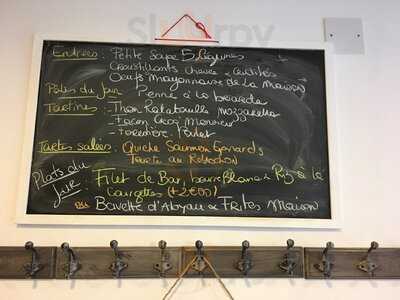 Entrées : Petite soupe 5 Légumes
Croustillants chèvre
Oeufs mayonnaise de La Maison
Pâtes du Jour Penne à la
Tartines : - Thon Ratatouille mozzarella
- Façon Croq' Monsieur
- Poulet
Tartes salées : Quiche Saumon Epinards
Tarte au Reblochon
Plats du Jour : Filet de Bar, beurre Blanc & Riz à la
Courgettes (+2€00)
ou Bavette d'Aloyau & Frites Maison